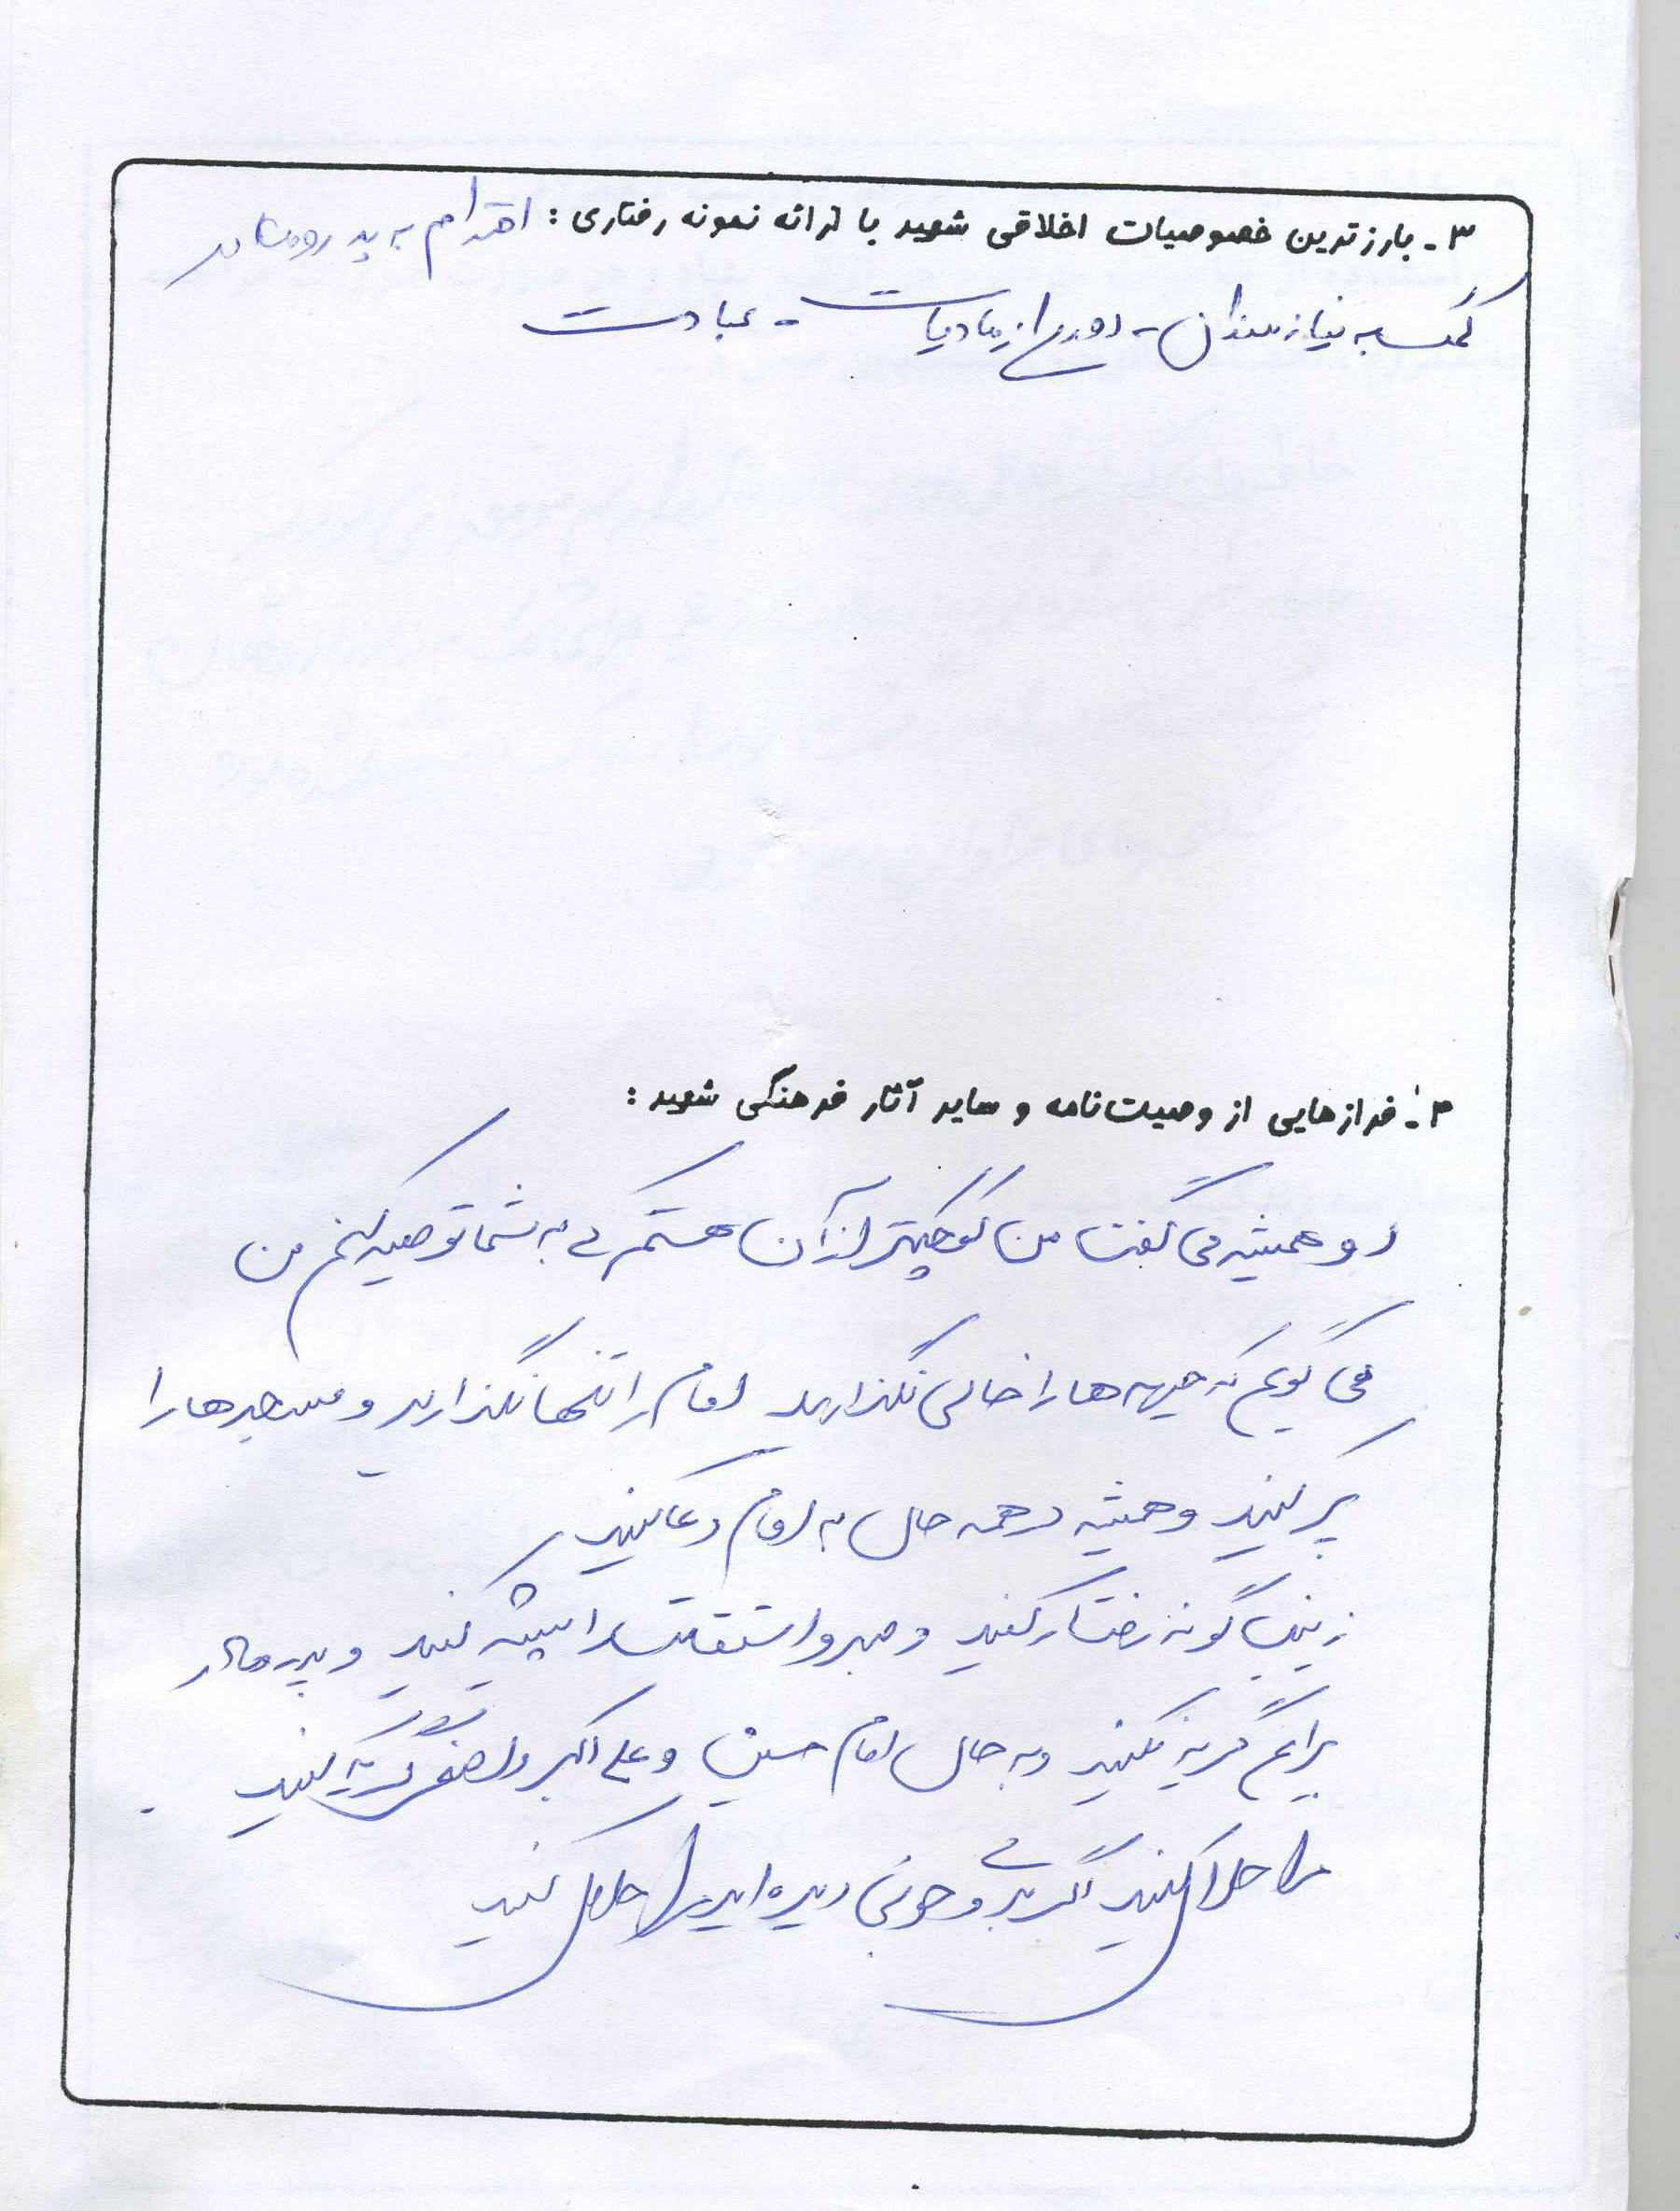 ۳- بارزترین خصوصیات اخلاقی شهید با ارائه نمونه رفتاری : احترام به پدر و مادر
کمک به نیازمندان - دوری از مادیات - عبادت
۴- فرازهایی از وصیت‌نامه و سایر آثار فرهنگی شهید :
او همیشه می گفت من کوچکتر از آن هستم که به شما توصیه کنم من
می گویم که جبهه ها را خالی نگذارید امام را تنها نگذارید و مسجدها را
پر کنید و همیشه در همه حال به امام دعا کنید
زینب گونه رفتار کنید و صبر و استقامت را پیشه کنید و پدر و مادر
برایم گریه نکنید و به حال امام حسین و علی اکبر و اصغر گریه کنید
مرا حلال کنید اگر بدی و خوبی دیده اید مرا حلال کنید